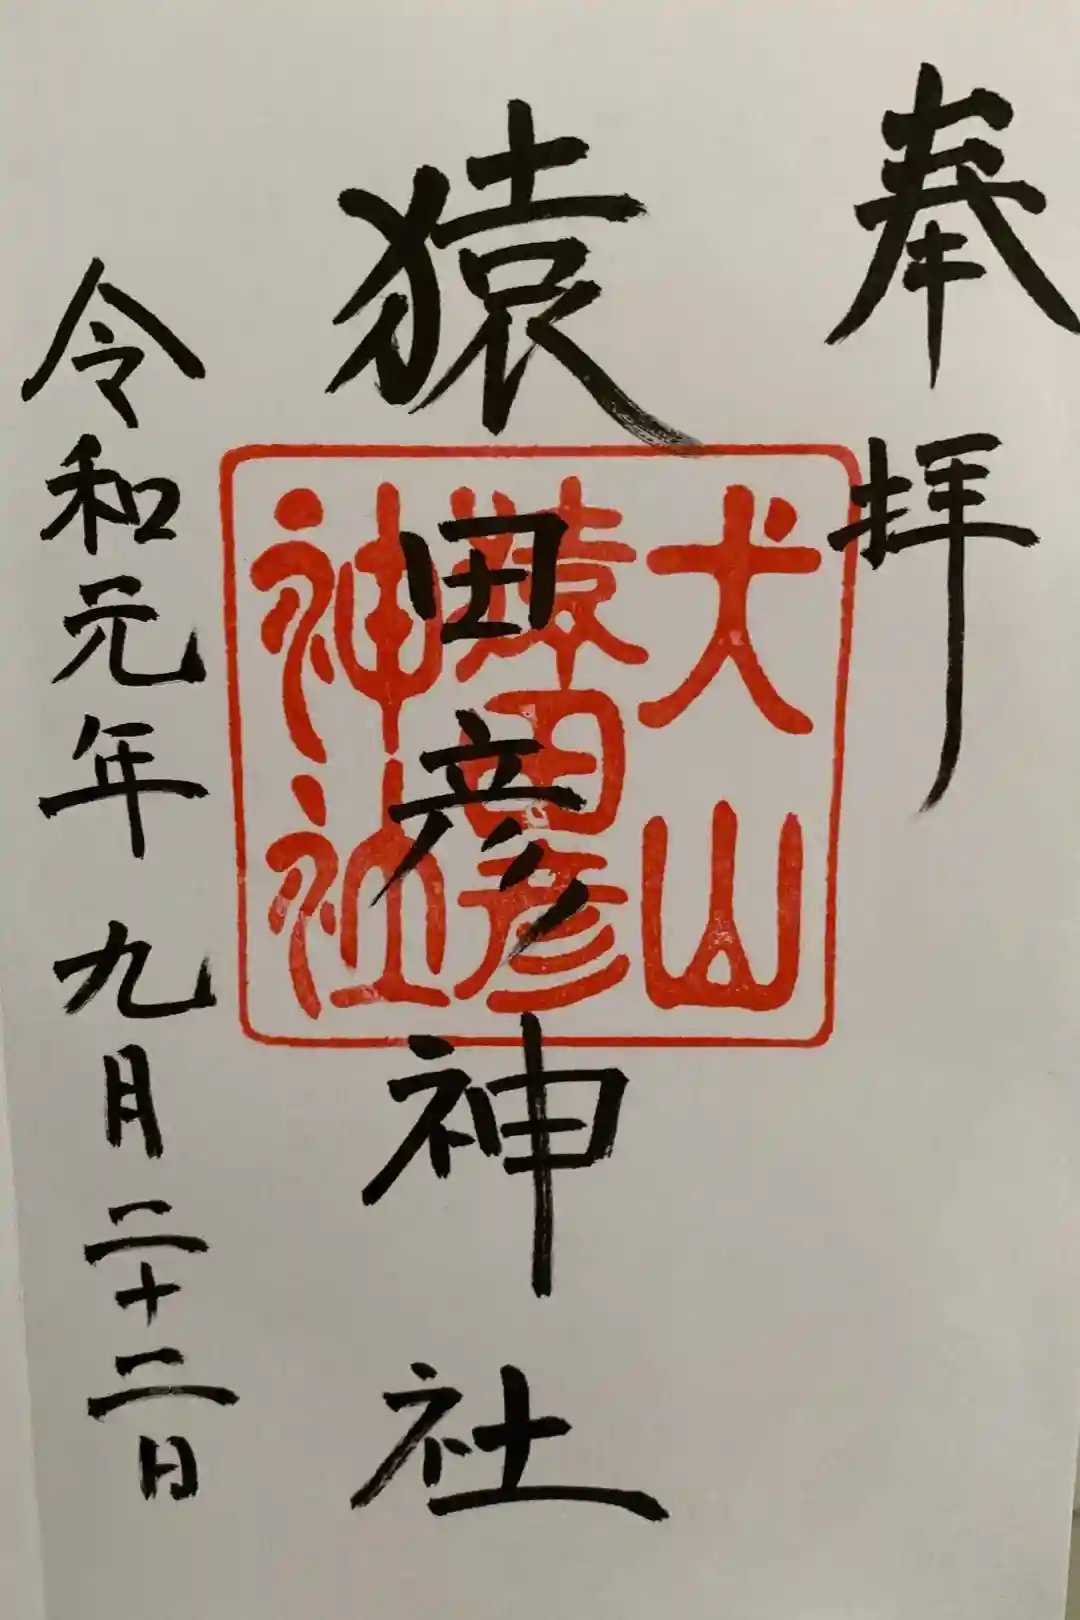 奉拝
猿田彦神社
犬山
猿田彦
神社
令和元年九月二十二日